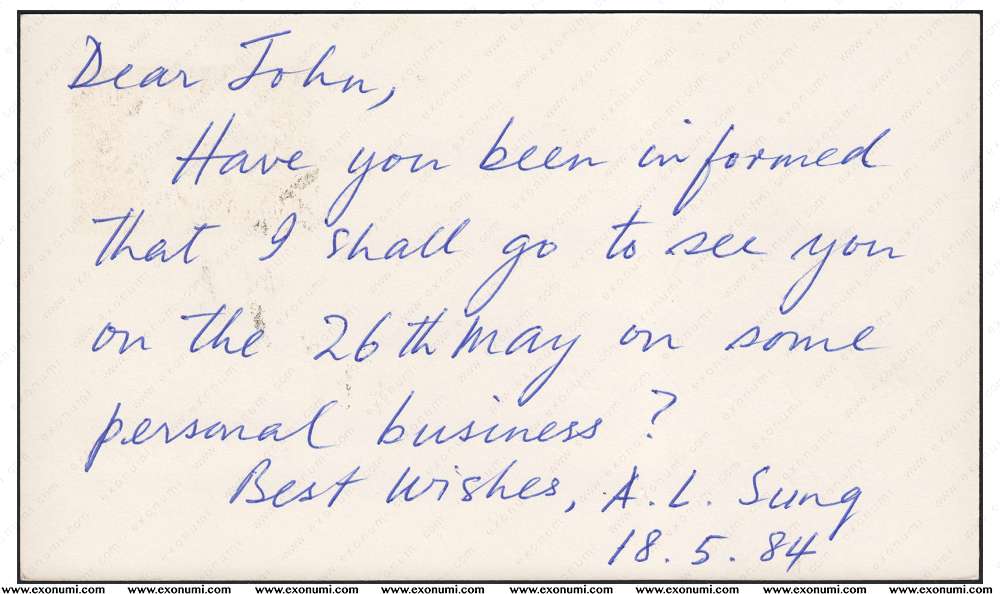 Dear John,
Have you been informed
that I shall go to see you
on the 26th May on some
personal business?
Best Wishes, A. L. Sung
18.5.84
www.exonumi.com www.exonumi.com www.exonumi.com www.exonumi.com www.exonumi.com www.exonumi.com www.exonumi.com www.exonumi.com